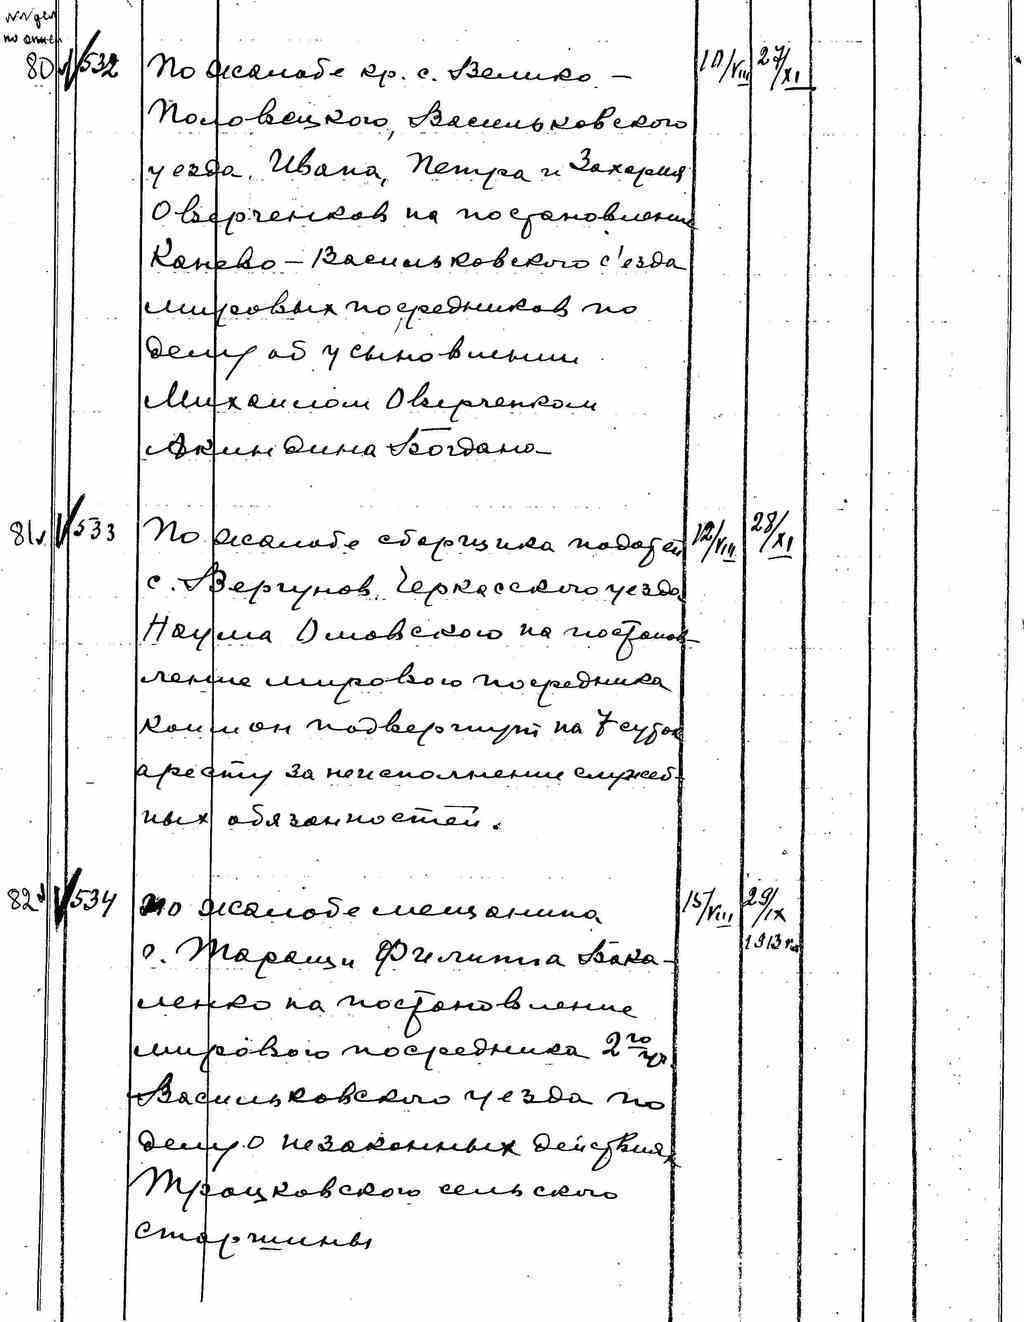 NN дел
по опис.
80 532 По жалобе кр. с. Велико- 10/VIII 27/XI
Половецкого, Васильковского
уезда, Ивана, Петра и Захария
Оверченков на постановление
Канево-Васильковского с'езда
мировых посредников по
делу об усыновлении
Михаилом Оверченком
Акиндина Богдано-
81 533 По жалобе сборщика податей 12/VIII 28/XI
с. Вергунов, Черкасского уезда
Наума Омовского на постанов-
ление мирового посредника
коим он подвергнут на 7 суток
аресту за неисполнение служеб-
ных обязанностей.
82 534 По жалобе мещанина 15/VIII 29/IX
г. Таращи Филиппа Бака- 1913 г.
ленко на постановление
мирового посредника 2го уч.
Васильковского уезда по
делу о незаконных действиях
Троцковского сельского
старшины